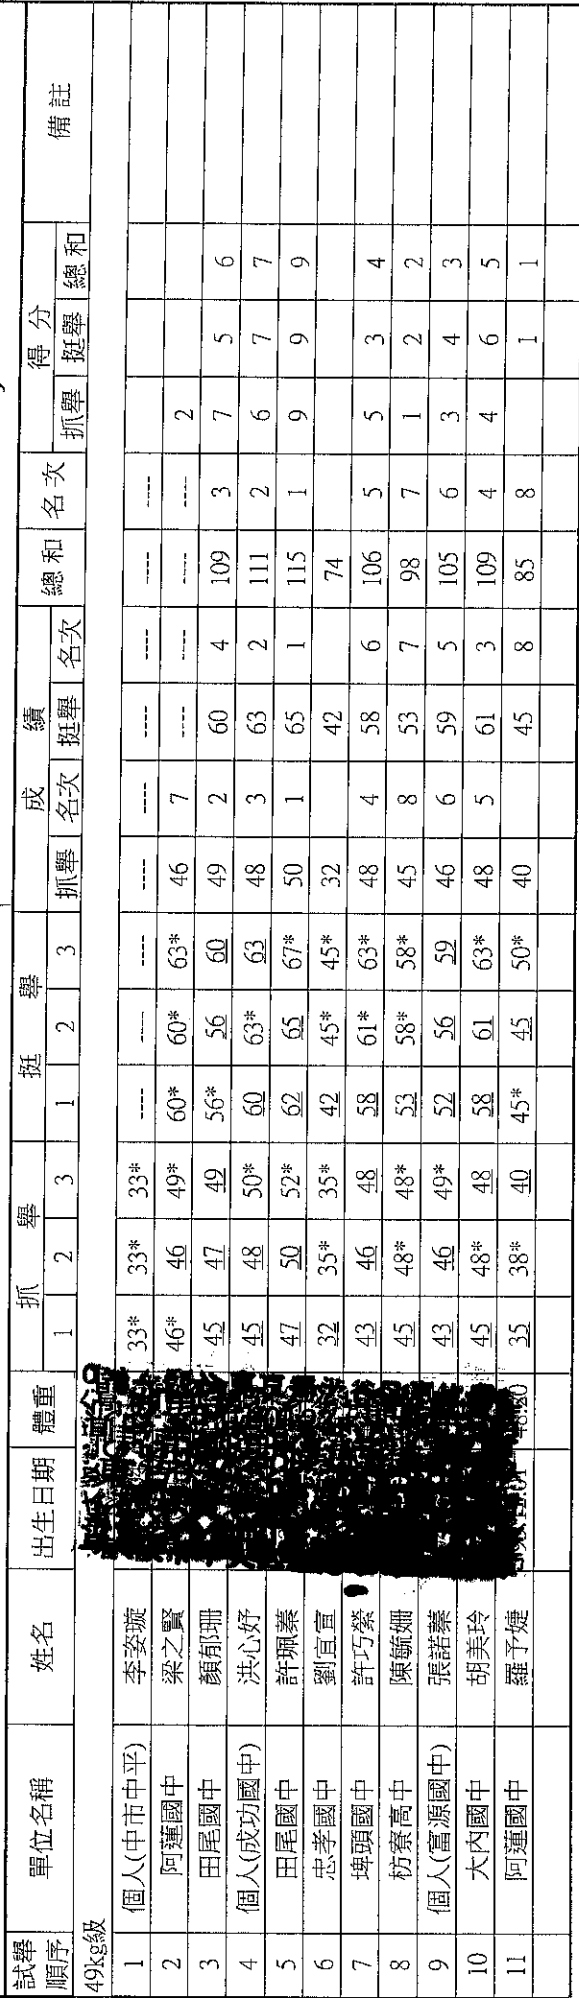 試舉順序 單位名稱 姓名 出生日期 體重 抓舉 挺舉 成績 得分 備註
1 2 3 1 2 3 抓舉 名次 挺舉 名次 總和 名次 抓舉 挺舉 總和
49kg級
1 個人(中市中平) 李姿璇 33* 33* 33* ---- ---- ---- ---- ---- ---- ---- ---- ----
2 阿蓮國中 梁之賢 46* 46 49* 60* 60* 63* 46 7 ---- ---- ---- ---- 2
3 田尾國中 顏郁珊 45 47 49 56* 56 60 49 2 60 4 109 3 7 5 6
4 個人(成功國中) 洪心妤 45 48 50* 60 63* 63 48 3 63 2 111 2 6 7 7
5 田尾國中 許珮蓁 47 50 52* 62 65 67* 50 1 65 1 115 1 9 9 9
6 忠孝國中 劉宜宣 32 35* 35* 42 45* 45* 32 42 74
7 埤頭國中 許巧縈 43 46 48 58 61* 63* 48 4 58 6 106 5 5 3 4
8 枋寮高中 陳毓姍 45 48* 48* 53 58* 58* 45 8 53 7 98 7 1 2 2
9 個人(富源國中) 張諾蓁 43 46 49* 52 56 59 46 6 59 5 105 6 3 4 3
10 大內國中 胡美玲 45 48* 48 58 61 63* 48 5 61 3 109 4 4 6 5
11 阿蓮國中 羅予婕 35 38* 40 45* 45 50* 40 45 8 85 8 1 1